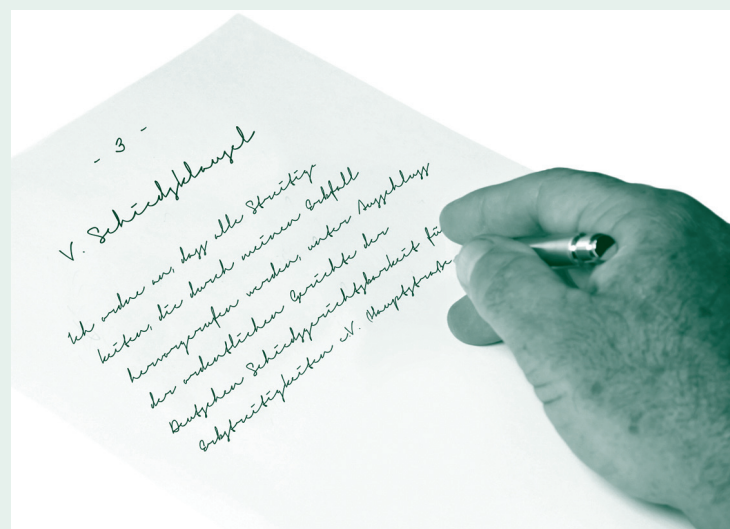 - 3 -
V. Schiedsklausel
Ich ordne an, dass alle Streitig-
keiten, die durch meinen Erbfall
hervorgerufen werden, unter Ausschluss
der ordentlichen Gerichte der
Deutschen Schiedsgerichtsbarkeit fü
Erbstreitigkeiten e.V. Hauptstraße